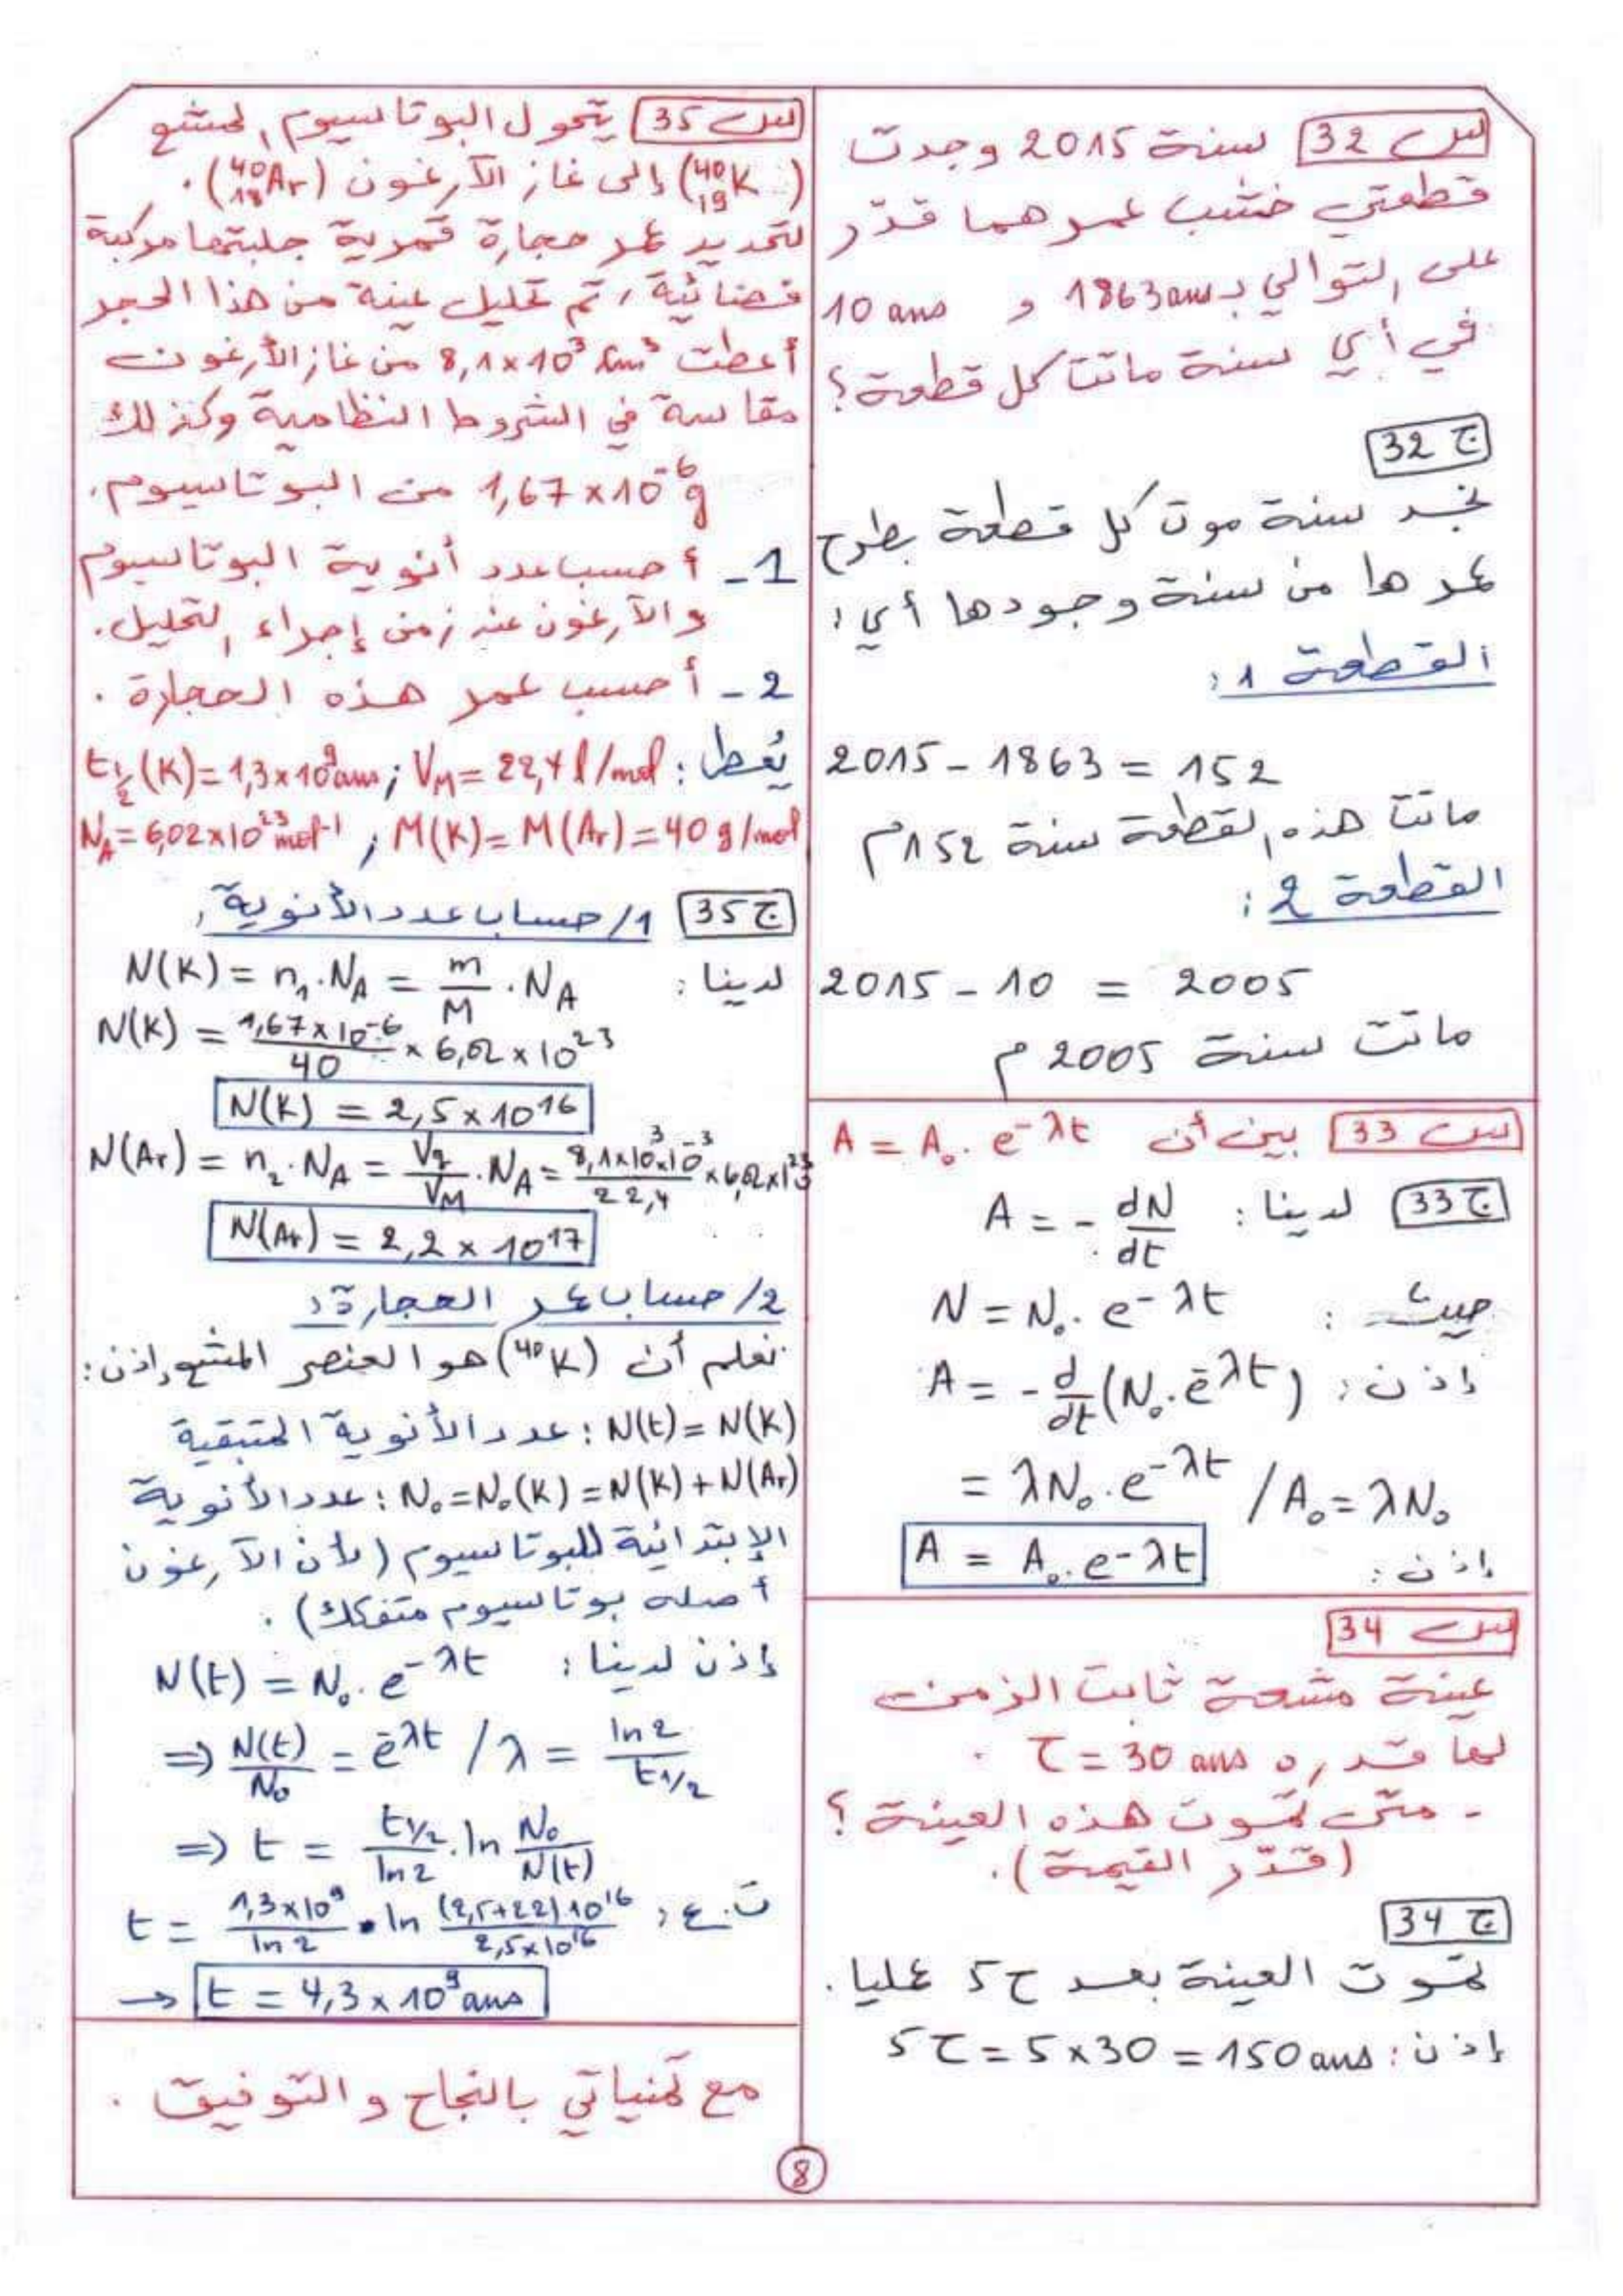 س 32 سنة 2015 وجدت
قطعتي خشب عمرهما قدّر
على التوالي بـ 1863 ans و 10 ans
في أي سنة ماتت كل قطعة؟
ج 32
نجد سنة موت كل قطعة بطرح
عمرها من سنة وجودها أي:
القطعة 1:
2015 - 1863 = 152
ماتت هذه القطعة سنة 152م
القطعة 2:
2015 - 10 = 2005
ماتت سنة 2005 م
س 33 بين أن A = A₀ . e^-λt
ج 33 لدينا: A = - dN/dt
حيث: N = N₀ . e^-λt
إذن: A = - d/dt (N₀ . e^-λt)
= λN₀ . e^-λt / A₀ = λN₀
إذن: A = A₀ . e^-λt
س 34
عينة مشعة ثابت الزمن
لها قدره τ = 30 ans .
- متى تموت هذه العينة؟
(قدّر القيمة).
ج 34
تموت العينة بعد 5τ عمليا.
إذن: 5τ = 5 x 30 = 150 ans
س 35 يتحول البوتاسيوم المشع
(⁴⁰₁₉K) إلى غاز الآرغون (⁴⁰₁₈Ar).
لتحديد عمر حجارة قمرية جلبتها مركبة
فضائية، تم تحليل عينة من هذا الحجر
أعطت 8,1 x 10³ cm³ من غاز الأرغون
مقاسة في الشروط النظامية وكذلك
1,67 x 10⁻⁶ g من البوتاسيوم.
1- أحسب عدد أنوية البوتاسيوم
والآرغون عند زمن إجراء التحليل.
2- أحسب عمر هذه الحجارة.
يُعطى: t½ (K) = 1,3 x 10⁹ ans ; V_M = 22,4 l/mol
N_A = 6,02 x 10²³ mol⁻¹ ; M(K) = M(Ar) = 40 g/mol
ج 35 1/ حساب عدد الأنوية:
لدينا: N(K) = n₁ . N_A = m/M . N_A
N(K) = 1,67 x 10⁻⁶/40 x 6,02 x 10²³
N(K) = 2,5 x 10¹⁶
N(Ar) = n₂ . N_A = Vg/V_M . N_A = 8,1 x 10³ x 10⁻³/22,4 x 6,02 x 10²³
N(Ar) = 2,2 x 10¹⁷
2/ حساب عمر الحجارة:
نعلم أن (⁴⁰K) هو العنصر المشع إذن:
N(t) = N(K) : عدد الأنوية المتبقية
N₀ = N₀(K) = N(K) + N(Ar) : عدد الأنوية
الإبتدائية للبوتاسيوم (لأن الآرغون
أصله بوتاسيوم متفكك).
إذن لدينا: N(t) = N₀ . e^-λt
⇒ N(t)/N₀ = e^-λt / λ = ln2/t1/2
⇒ t = t1/2/ln2 . ln N₀/N(t)
ت.ع: t = 1,3 x 10⁹/ln2 • ln (2,5+22)10¹⁶/2,5 x 10¹⁶
→ t = 4,3 x 10⁹ ans
مع تمنياتي بالنجاح والتوفيق.
8